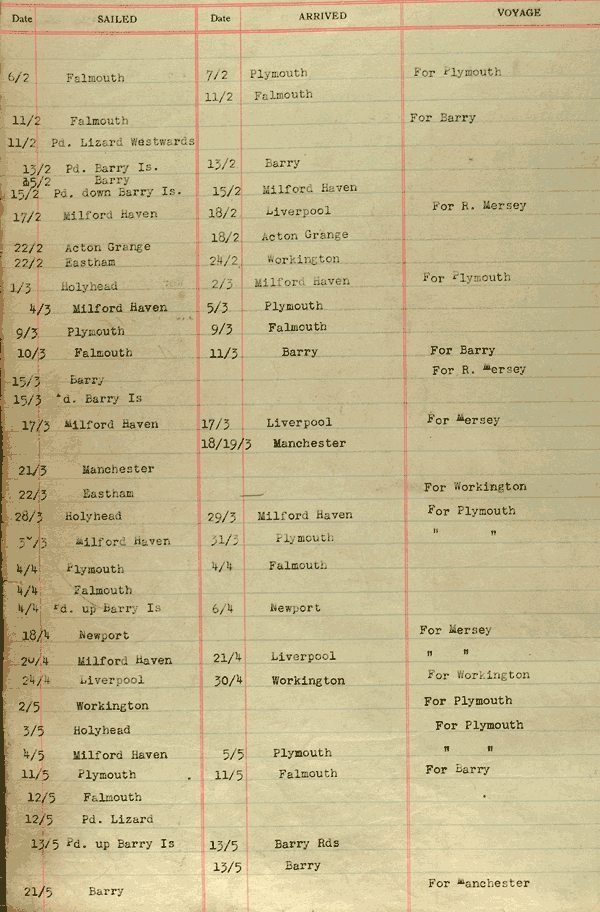 Date SAILED Date ARRIVED VOYAGE
6/2 Falmouth 7/2 Plymouth For Plymouth
11/2 Falmouth
11/2 Falmouth For Barry
11/2 Pd. Lizard Westwards
13/2 Pd. Barry Is. 13/2 Barry
15/2 Barry
15/2 Pd. down Barry Is. 15/2 Milford Haven
17/2 Milford Haven 18/2 Liverpool For R. Mersey
18/2 Acton Grange
22/2 Acton Grange
22/2 Eastham 24/2 Workington
1/3 Holyhead 2/3 Milford Haven For Plymouth
4/3 Milford Haven 5/3 Plymouth
9/3 Plymouth 9/3 Falmouth
10/3 Falmouth 11/3 Barry For Barry
15/3 Barry For R. Mersey
15/3 Pd. Barry Is
17/3 Milford Haven 17/3 Liverpool For Mersey
18/19/3 Manchester
21/3 Manchester
22/3 Eastham For Workington
28/3 Holyhead 29/3 Milford Haven For Plymouth
Milford Haven 31/3 Plymouth " "
4/4 Plymouth 4/4 Falmouth
4/4 Falmouth
4/4 Pd. up Barry Is 6/4 Newport
18/4 Newport For Mersey
20/4 Milford Haven 21/4 Liverpool " "
24/4 Liverpool 30/4 Workington For Workington
2/5 Workington For Plymouth
3/5 Holyhead For Plymouth
4/5 Milford Haven 5/5 Plymouth " "
11/5 Plymouth . 11/5 Falmouth For Barry
12/5 Falmouth
12/5 Pd. Lizard
13/5 Pd. up Barry Is 13/5 Barry Rds
13/5 Barry
21/5 Barry For Manchester